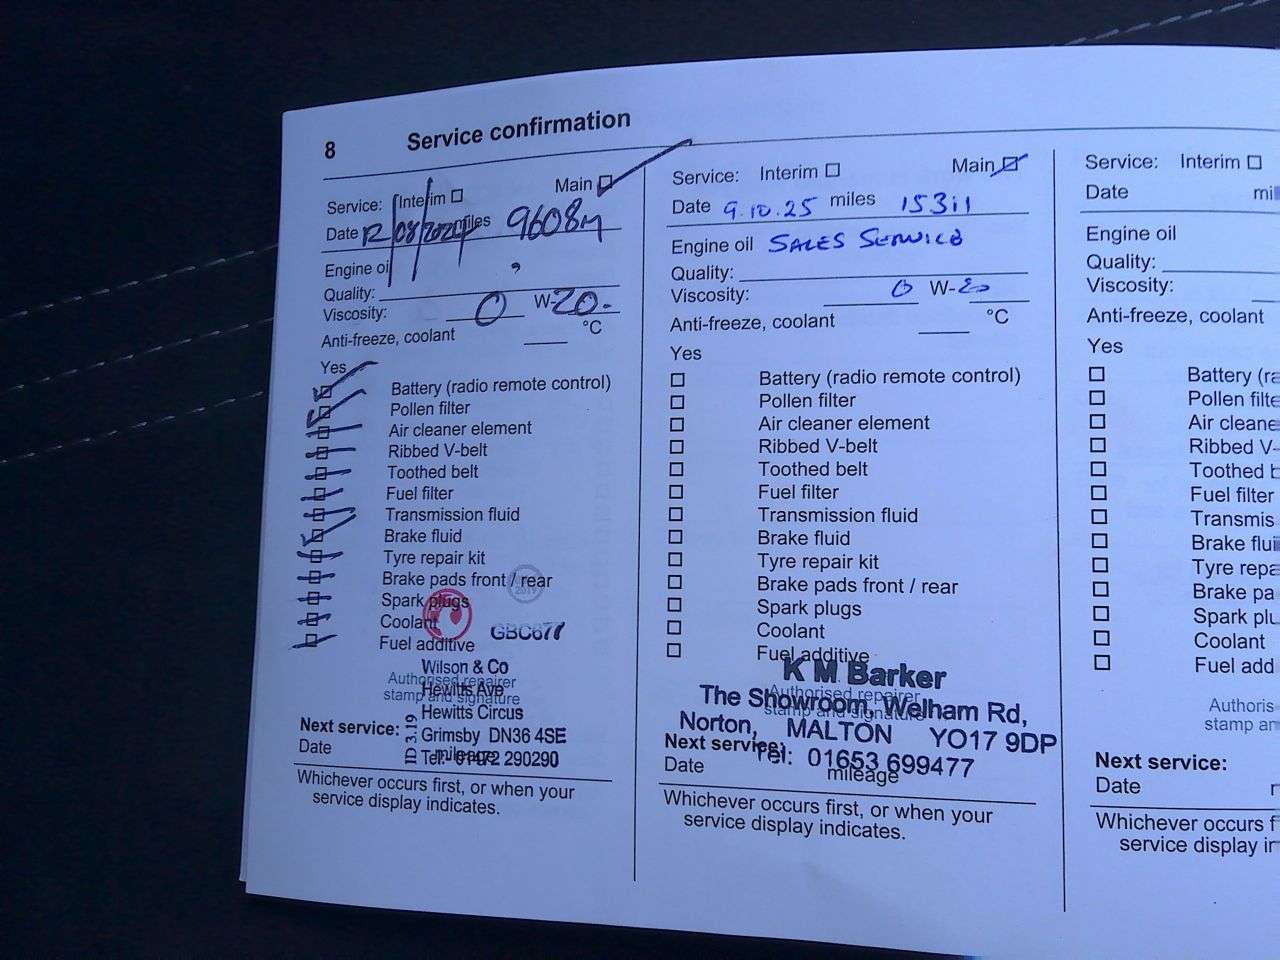 8 Service confirmation
Service: Interim Main
Date 12/08/2021 miles 9608M
Engine oil
Quality:
Viscosity: 0 W-20-
Anti-freeze, coolant °C
Yes
Battery (radio remote control)
Pollen filter
Air cleaner element
Ribbed V-belt
Toothed belt
Fuel filter
Transmission fluid
Brake fluid
Tyre repair kit
Brake pads front / rear
Spark plugs
Coolant
GBC677
Fuel additive
Wilson & Co
Authorised repairer
Hewitts Ave
stamp and signature
Hewitts Circus
Next service:
ID 3.19
Grimsby DN36 4SE
Date mileage
Tel:- 01472 290290
Whichever occurs first, or when your
service display indicates.
Service: Interim Main
Date 9.10.25 miles 15311
Engine oil SALES SERVICE
Quality:
Viscosity: 0 W-20
Anti-freeze, coolant °C
Yes
Battery (radio remote control)
Pollen filter
Air cleaner element
Ribbed V-belt
Toothed belt
Fuel filter
Transmission fluid
Brake fluid
Tyre repair kit
Brake pads front / rear
Spark plugs
Coolant
Fuel additive
K M Barker
Authorised repairer
The Showroom, Welham Rd,
stamp and signature
Norton, MALTON YO17 9DP
Next service:
Tel: 01653 699477
Date mileage
Whichever occurs first, or when your
service display indicates.
Service: Interim
Date mil
Engine oil
Quality:
Viscosity:
Anti-freeze, coolant
Yes
Battery (ra
Pollen filte
Air cleane
Ribbed V-
Toothed b
Fuel filter
Transmis
Brake flui
Tyre repa
Brake pa
Spark plu
Coolant
Fuel add
Authoris
stamp an
Next service:
Date
Whichever occurs f
service display in